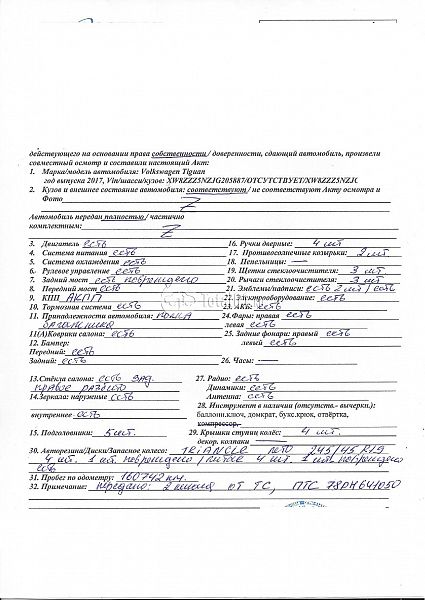 действующего на основании права собственности / доверенности, сдающий автомобиль, произвели
совместный осмотр и составили настоящий Акт:
1. Марка/модель автомобиля: Volkswagen Tiguan
год выпуска 2017, Vin/шасси/кузов: XW8ZZZ5NZJG205887/ОТСУТСТВУЕТ/XW8ZZZ5NZJG
2. Кузов и внешнее состояние автомобиля: соответствуют / не соответствуют Акту осмотра и
Фото Z
Автомобиль передан полностью / частично
комплектным: Z
3. Двигатель есть
4. Система питания есть
5. Система охлаждения есть
6. Рулевое управление есть
7. Задний мост есть повреждено
8. Передний мост есть
9. КПП АКПП
10. Тормозная система есть
11. Принадлежности автомобиля: полка
багажника
11(А)Коврики салона: есть
12. Бампер:
Передний: есть
Задний: есть
16. Ручки дверные: 4 шт
17. Противосолнечные козырьки: 2 шт
18. Пепельницы: —
19. Щетки стеклоочистителя: 3 шт
20. Рычаги стеклоочистителя: 3 шт
21. Эмблемы/надписи: есть 2 шт / есть
22. Электрооборудование: есть
23. АКБ: есть
24.Фары: правая есть
левая есть
25. Задние фонари: правый есть
левый есть
26. Часы: —
13.Стёкла салона: есть зад.
правое разбито
14.Зеркала: наружные есть
внутреннее есть
15. Подголовники: 5 шт.
27. Радио: есть
Динамики: есть
Антенна: есть
28. Инструмент в наличии (отсутств.- вычеркн.):
баллонн.ключ, домкрат, букс.крюк, отвёртка,
компрессор.
29. Крышки ступиц колёс: 4 шт.
декор. колпаки
30. Авторезина/Диски/Запасное колесо: TRIANGLE лето 245/45 R19
4 шт. 1 шт. повреждено / литое 4 шт. 1 шт. повреждено
31. Пробег по одометру: 160742 км.
32. Примечание: передано: 2 ключа от ТС, ПТС 78РН641050